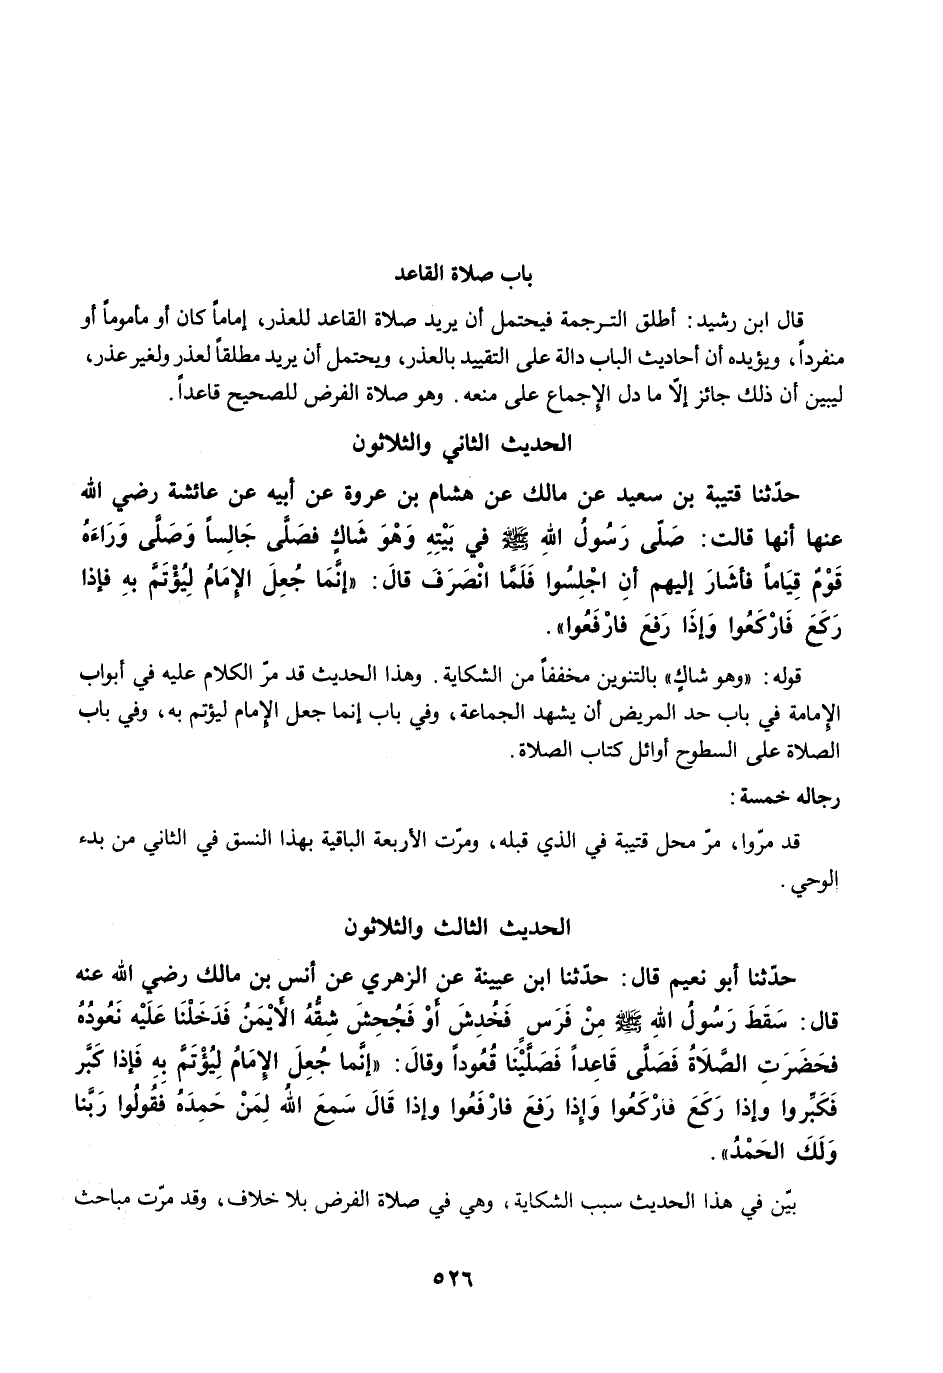 باب صلاة القاعد
قال ابن رشيد: أطلق الترجمة فيحتمل أن يريد صلاة القاعد للعذر، إماماً كان أو مأموماً أو
منفرداً، ويؤيده أن أحاديث الباب دالة على التقييد بالعذر، ويحتمل أن يريد مطلقاً لعذر ولغير عذر،
ليبين أن ذلك جائز إلّا ما دل الإجماع على منعه. وهو صلاة الفرض للصحيح قاعداً.
الحديث الثاني والثلاثون
حدّثنا قتيبة بن سعيد عن مالك عن هشام بن عروة عن أبيه عن عائشة رضي الله
عنها أنها قالت: صَلّى رَسُولُ اللهِ ﷺ في بَيْتِهِ وَهْوَ شَاكٍ فصَلَّى جَالِساً وَصَلَّى وَرَاءَهُ
قَوْمٌ قِيَاماً فأشَارَ إليهم أنِ اجْلِسُوا فَلَمَّا انْصَرَفَ قالَ: «إنَّمَا جُعِلَ الإمَامُ لِيُؤْتَمَّ بهِ فإذا
رَكَعَ فَارْكَعُوا وَإذَا رَفعَ فارْفَعُوا».
قوله: «وهو شاكٍ» بالتنوين مخففاً من الشكاية. وهذا الحديث قد مرّ الكلام عليه في أبواب
الإمامة في باب حد المريض أن يشهد الجماعة، وفي باب إنما جعل الإمام ليؤتم به، وفي باب
الصلاة على السطوح أوائل كتاب الصلاة.
رجاله خمسة:
قد مرّوا، مرّ محل قتيبة في الذي قبله، ومرّت الأربعة الباقية بهذا النسق في الثاني من بدء
الوحي.
الحديث الثالث والثلاثون
حدّثنا أبو نعيم قال: حدّثنا ابن عيينة عن الزهري عن أنس بن مالك رضي الله عنه
قال: سَقَطَ رَسُولُ اللهِ ﷺ مِنْ فَرَسٍ فَخُدِشَ أَوْ فَجُحِشَ شِقُّهُ الأَيْمَنُ فَدَخَلْنَا عَلَيْه نَعُودُهُ
فحَضَرَتِ الصَّلَاةُ فَصَلَّى قَاعِداً فَصَلَّيْنَا قُعُوداً وقالَ: «إنَّما جُعِلَ الإمَامُ لِيُؤْتَمَّ بِهِ فَإذا كَبَّر
فَكَبِّروا وإذا رَكَعَ فَارْكَعُوا وَإِذا رفعَ فارْفَعُوا وإذا قَالَ سَمِعَ اللهُ لِمَنْ حَمِدَهُ فقُولُوا رَبَّنا
وَلَكَ الحَمْدُ».
بيّن في هذا الحديث سبب الشكاية، وهي في صلاة الفرض بلا خلاف، وقد مرّت مباحث
٥٢٦